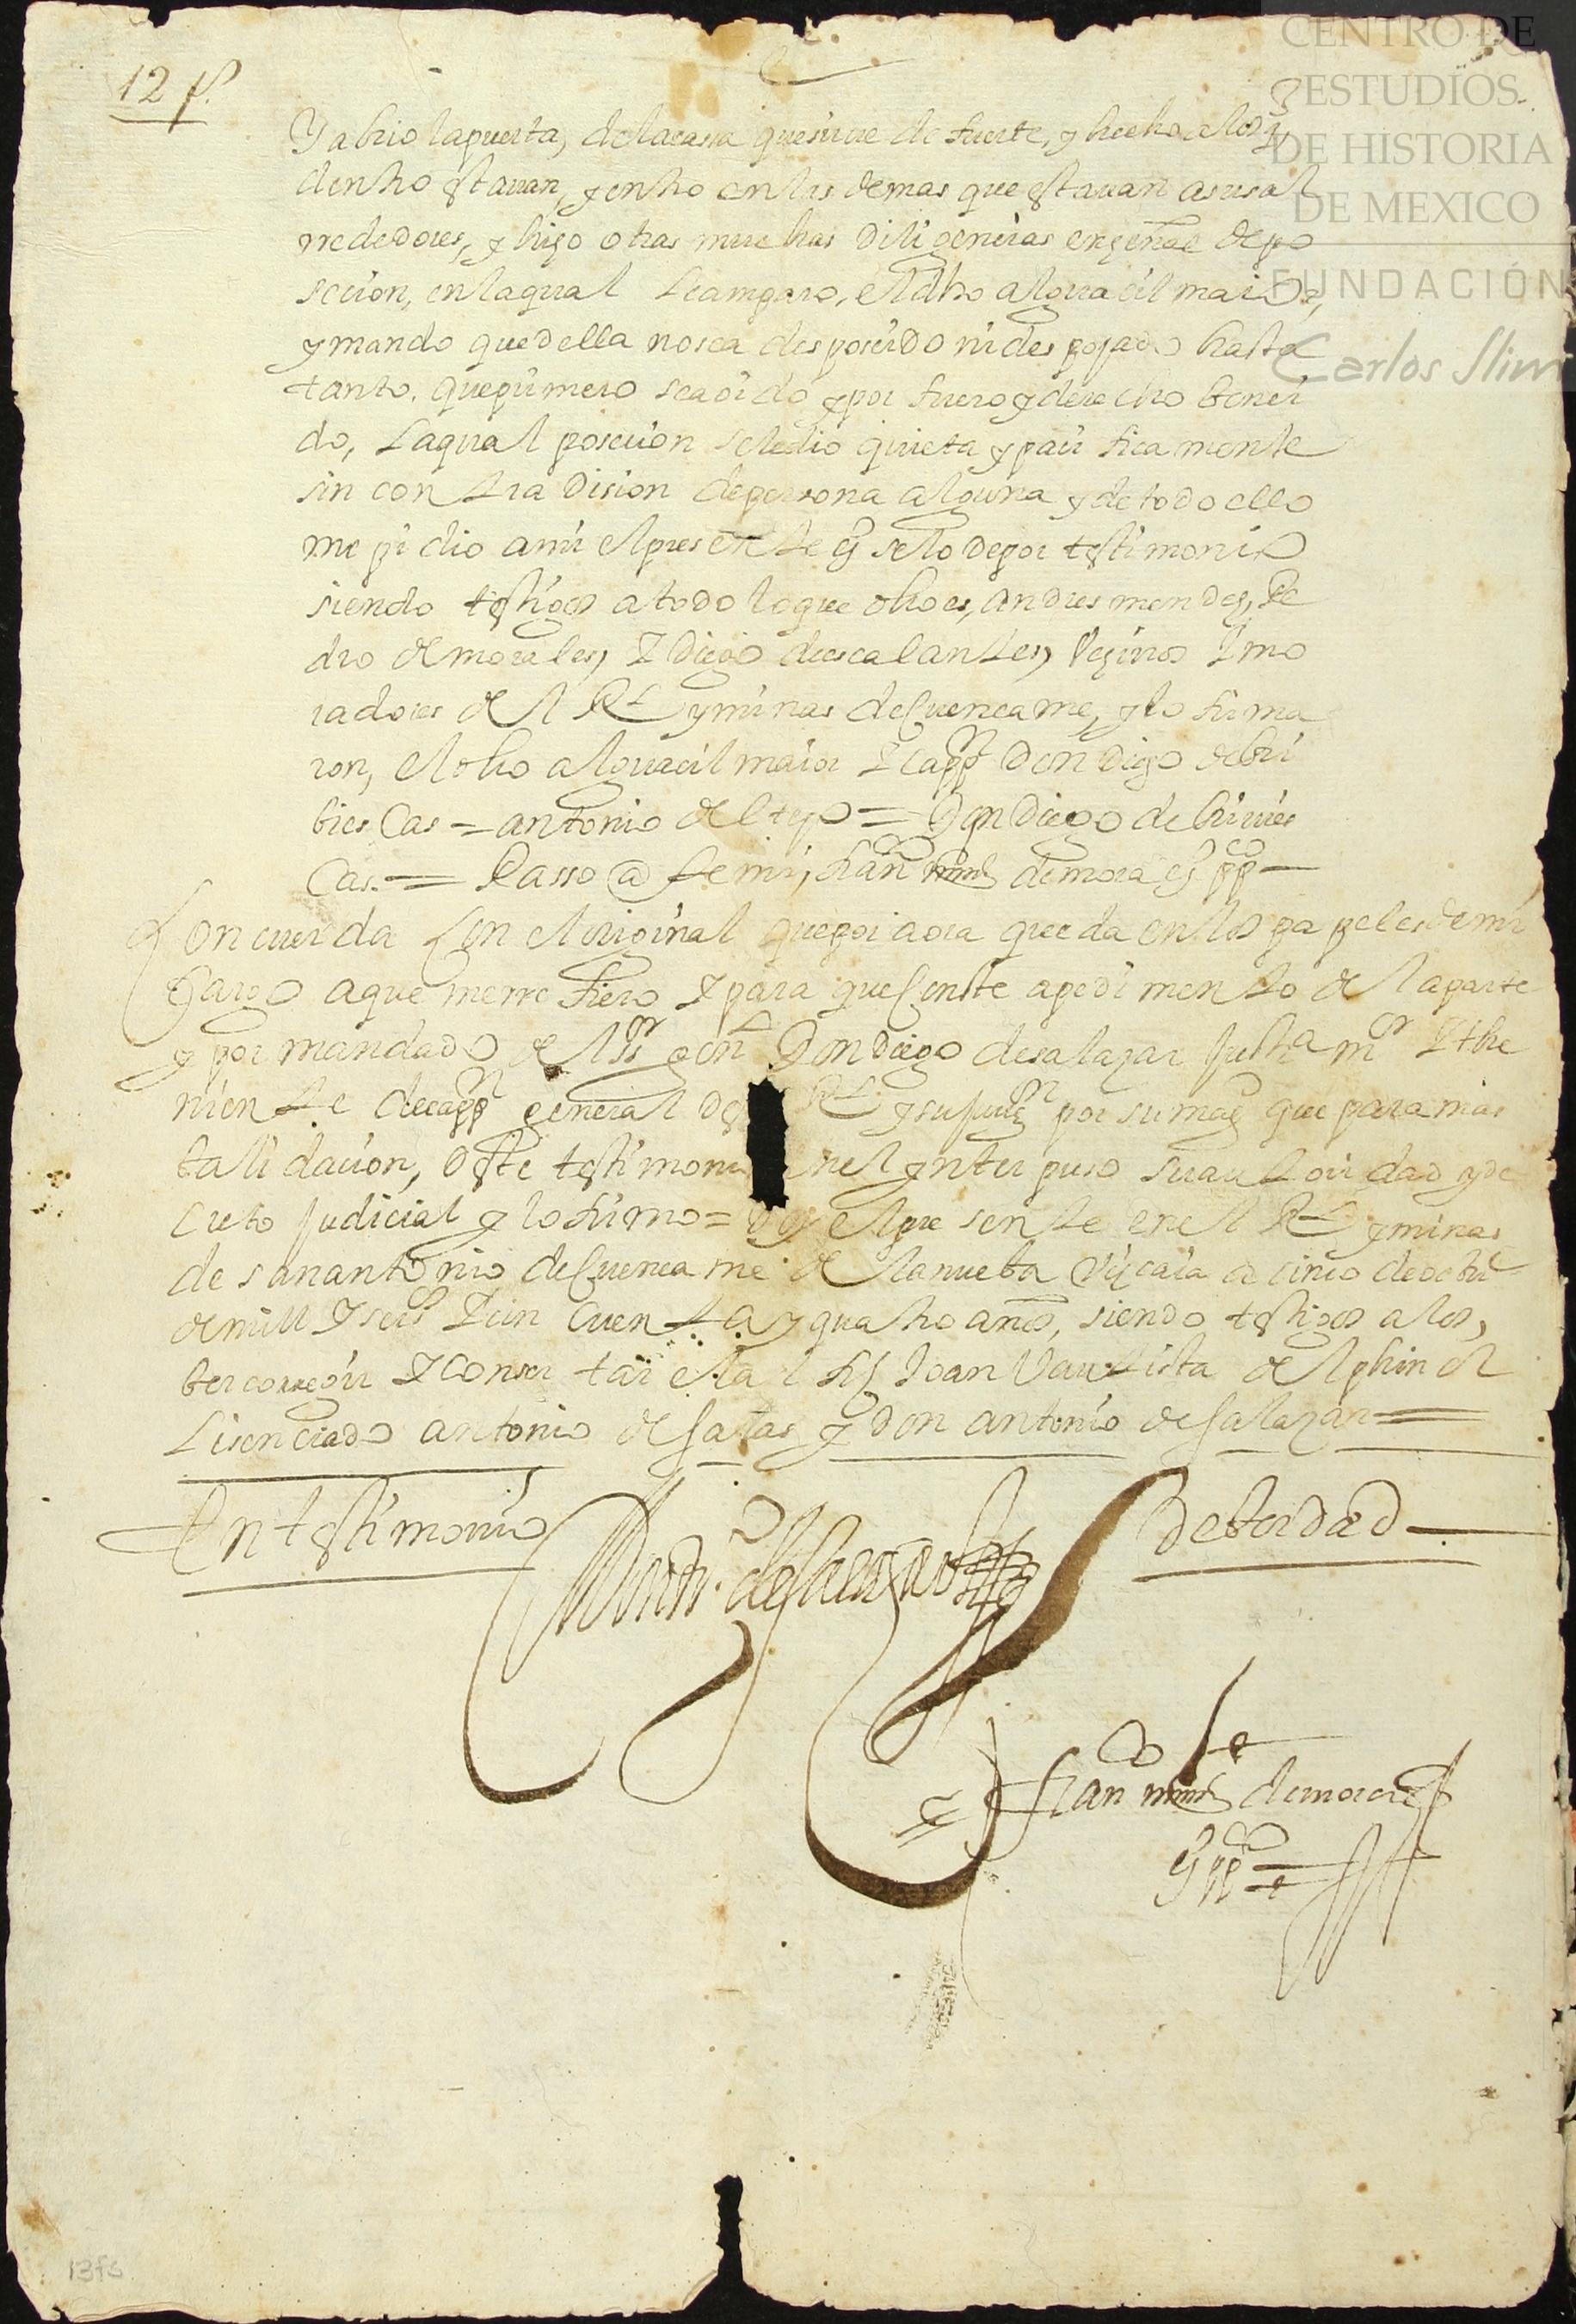 12 f.
CENTRO DE
ESTUDIOS
DE HISTORIA
DE MEXICO
FUNDACIÓN
Carlos Slim
Y abrio lapuerta, delacasa quesirue de fuerte, y hecho a los q
dentro estauan, y entro en las demas que estauan asus al
rrededores, y hiço otras muchas diligencias en señal de po
secion, en laqual leamparo, el dho alguacil maior,
y mando que della nosea desposeido nides pojado hasta
tanto. queprimero seaoido y por fuero y derecho benci
do, Laqual posecion seledio quieta y paci ficamente
sin contradision depersona alguna y de todo ello
me pidio ami el presente es selo depor testimonio
siendo testigos a todo loque dho es, andres mendes, Pe
dro de morales, Y Diego de escalantes, Veçinos Y mo
radores del Rl y minas de Cuencame, y lo firma
ron, el dho alguacil maior Y cappn Don Diego de bri
biescas = antonio del tejo = Don Diego de briuies
Cas. = Passo @ te mi, fran mrnz demora es ppco
Concuerda Con el original quepor aora queda en los pa peles de mi
Cargo aque me rre fiero Y para que Conste apedi mento de la parte
y por mandado del sor gen Don Diego desalazar Justa mor Y the
niente decappn general des Rl y su juridn por su magd que para mas
balidacion, deste testimoni en el ynter puso su autoridad y de
creto Judicial y lo firmo = Doy el presente en el Rl y minas
de san antonio de Cuencame de la nueba Vizcaia a cinco de octue
de mill Y seis Y cin Cuenta y quatro años, siendo testigos a les,
ber corregir Y Concer tar el al fez Joan Vautista delphin el
Lisenciado antonio de salas y don antonio de Salazar =
En testimonio
De berdad
fran mrnz demora
es ppco
13fs